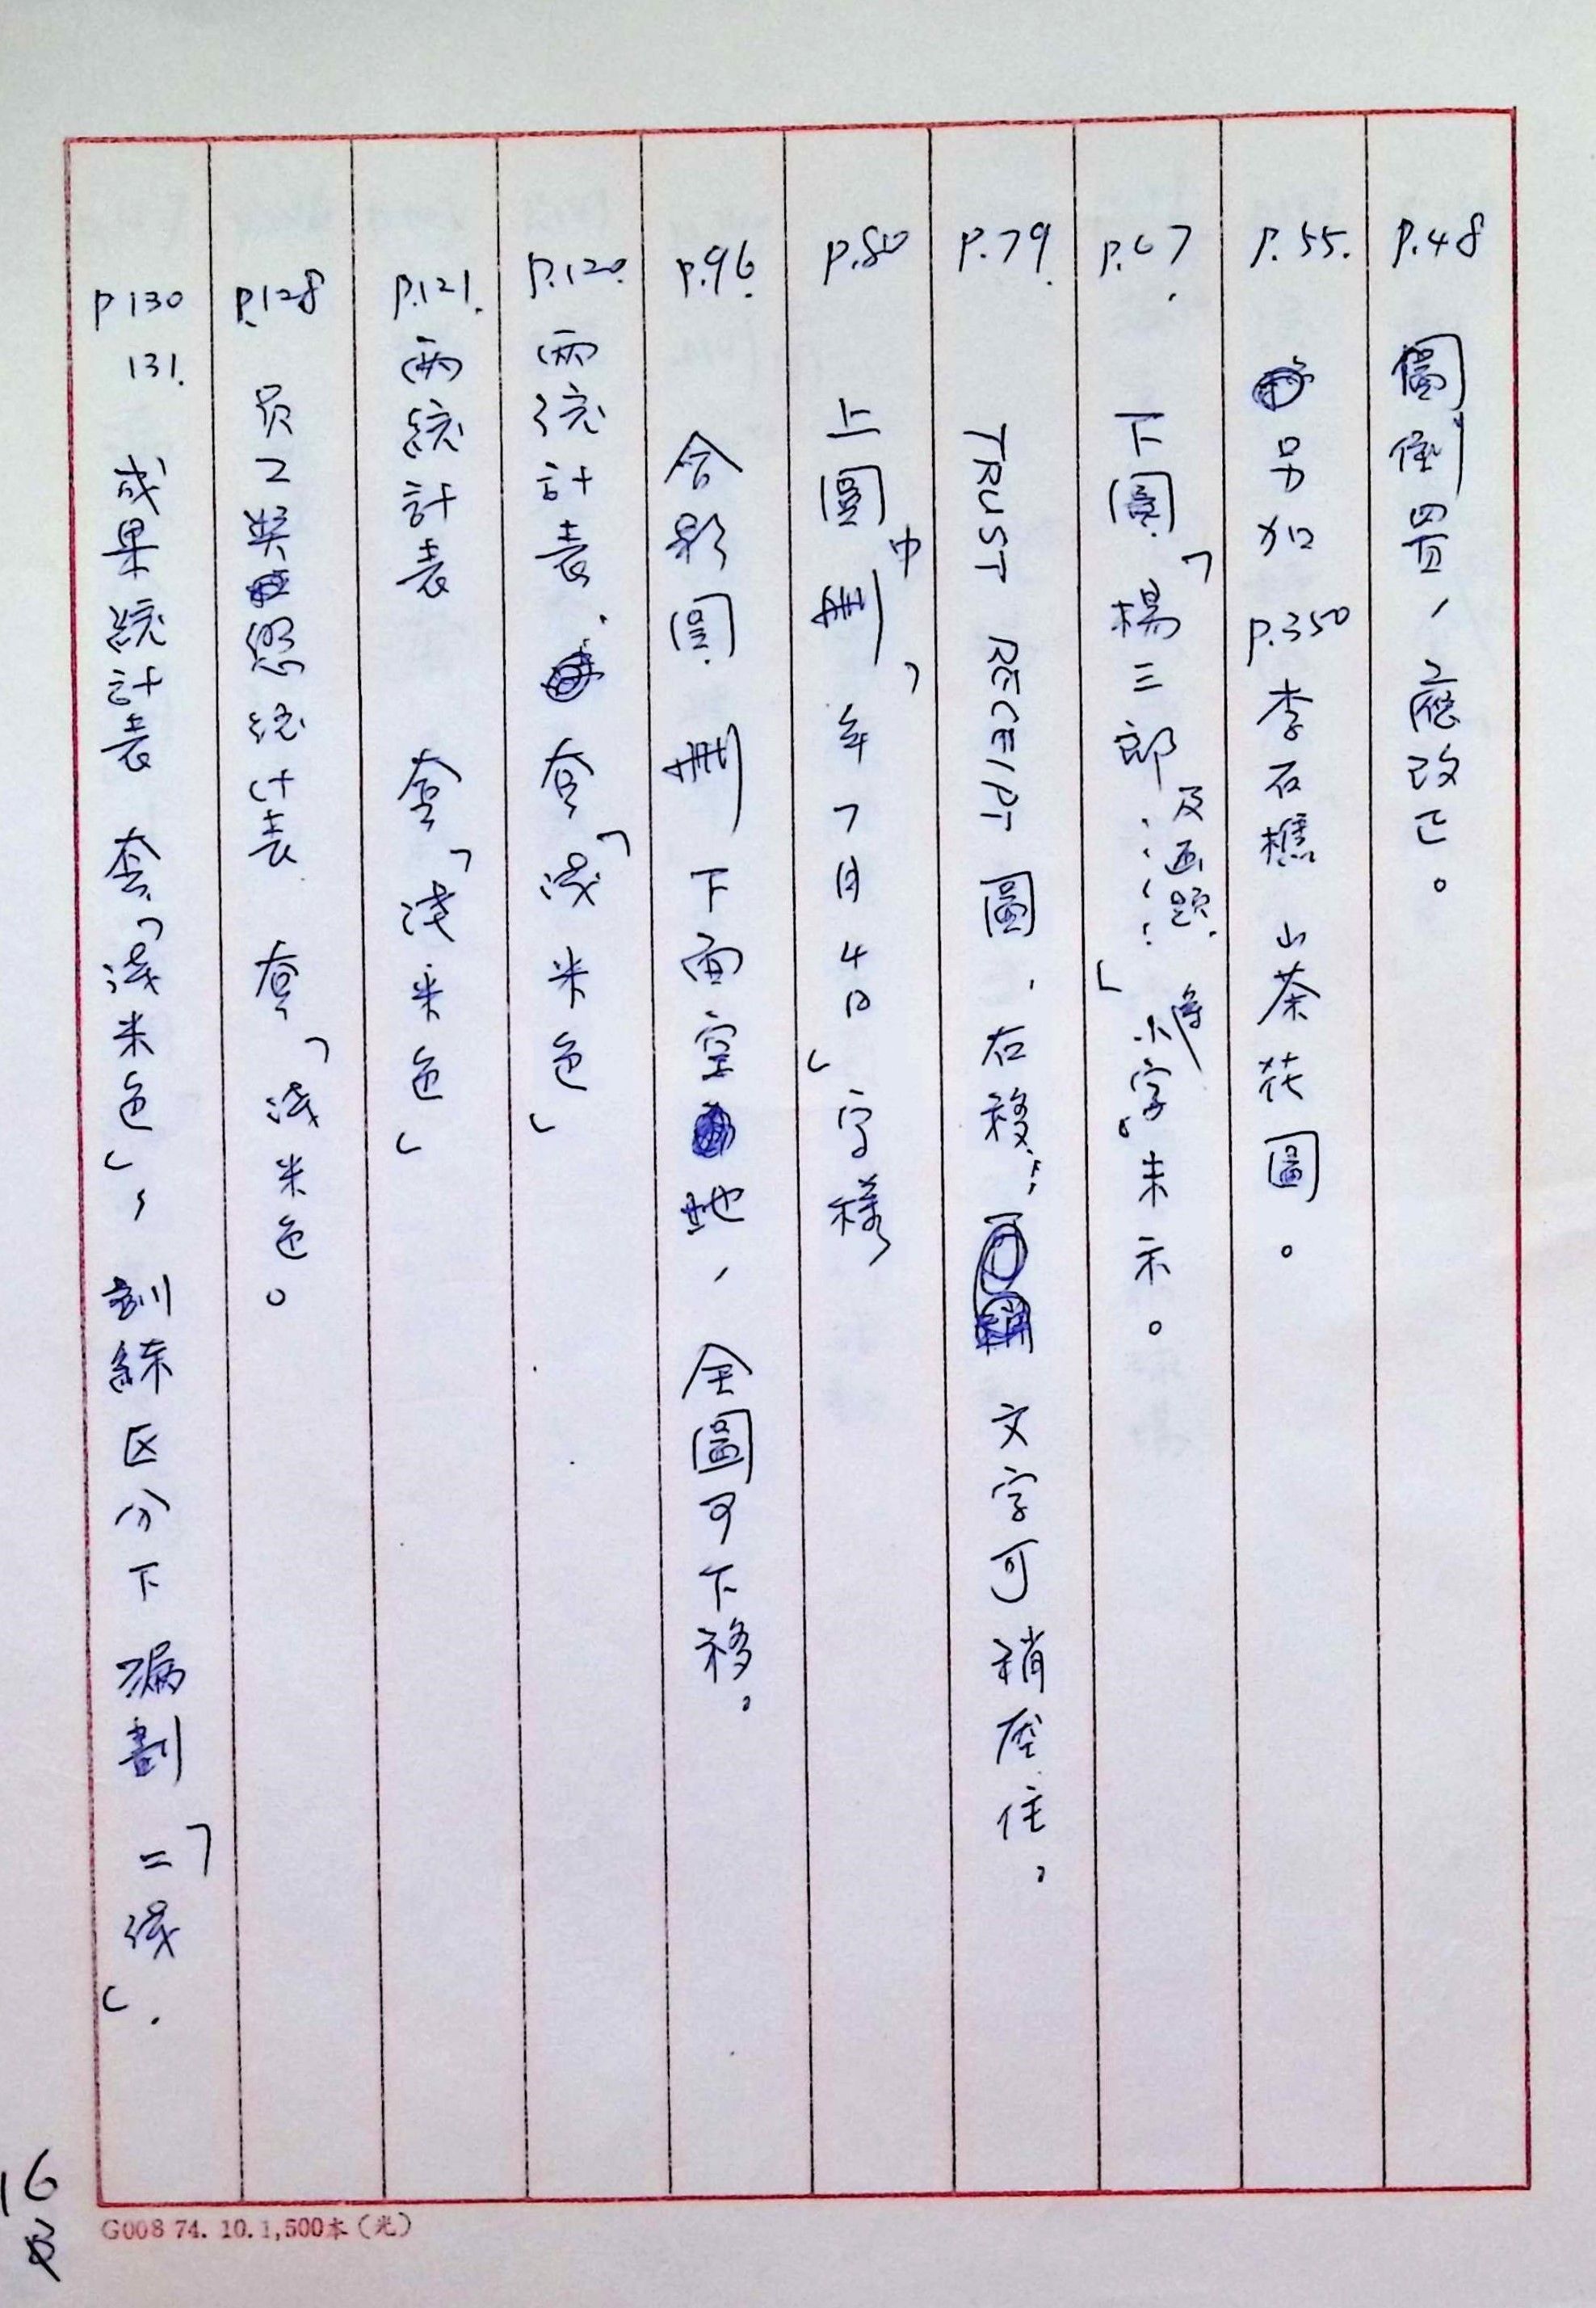 P.48 圖倒置，應改正。
P.55. 另加 P.350 李石樵 山茶花圖。
P.67. 下圖「楊三郎及逝題……」等小字。未示。
P.79. TRUST RECEIPT 圖，右移，文字可稍壓住，
P.80 上圖中刪「年7月4日」字樣
P.96. 合影圖 刪 下面空地，全圖可下移。
P.120. 兩統計表. 套「淺米色」
P.121. 兩統計表 套「淺米色」
P.128 員工獎懲統計表 套「淺米色。
P130 131. 成果統計表 套「淺米色」，訓練区分下 漏劃「二線」.
G008 74. 10. 1,500本（光）
16